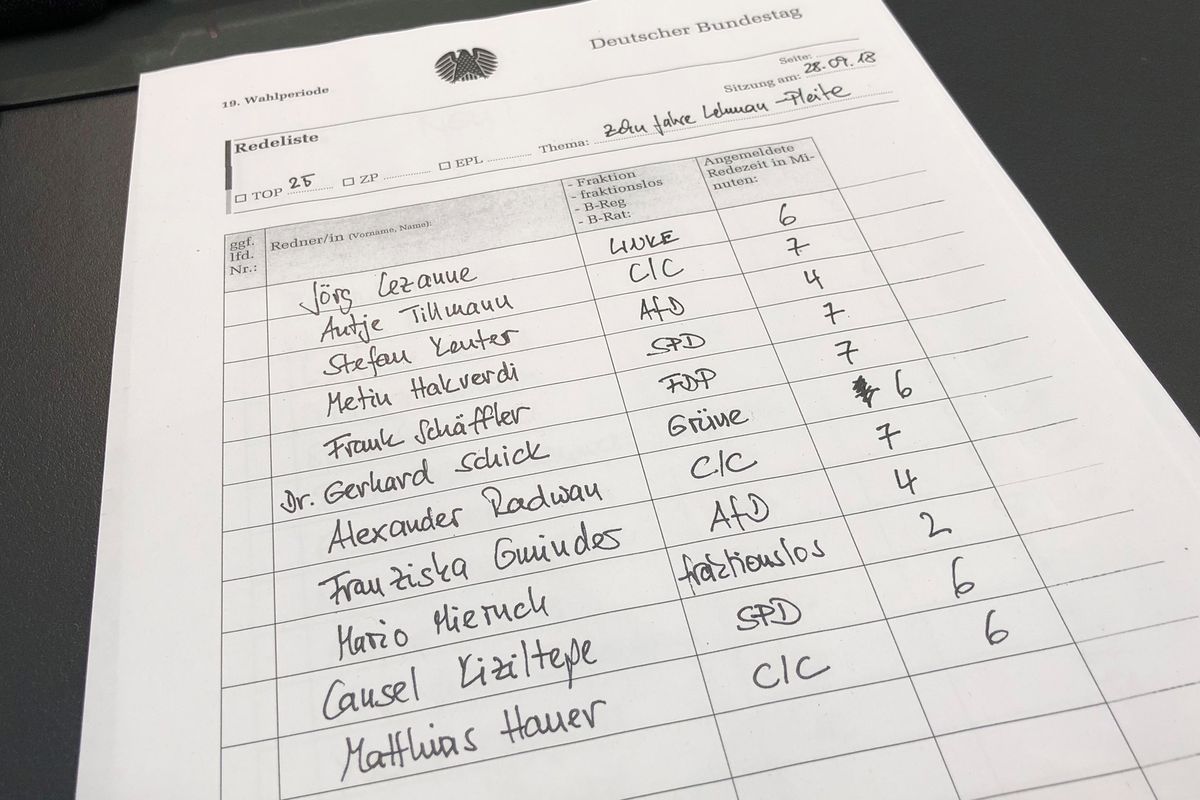 Deutscher Bundestag
19. Wahlperiode
Seite:
Sitzung am: 28.09.18
Redeliste
☐ TOP 25 ☐ ZP ☐ EPL Thema: Zehn Jahre Lehman-Pleite
ggf. lfd. Nr.: Redner/in (Vorname, Name): - Fraktion - fraktionslos - B-Reg - B-Rat: Angemeldete Redezeit in Mi-nuten:
Jörg Cezanne LINKE 6
Antje Tillmann C/C 7
Stefan Keuter AfD 4
Metin Hakverdi SPD 7
Frank Schäffler FDP 7
Dr. Gerhard Schick Grüne 6
Alexander Radwan C/C 7
Franziska Gminder AfD 4
Mario Mieruch fraktionslos 2
Cansel Kiziltepe SPD 6
Matthias Hauer C/C 6